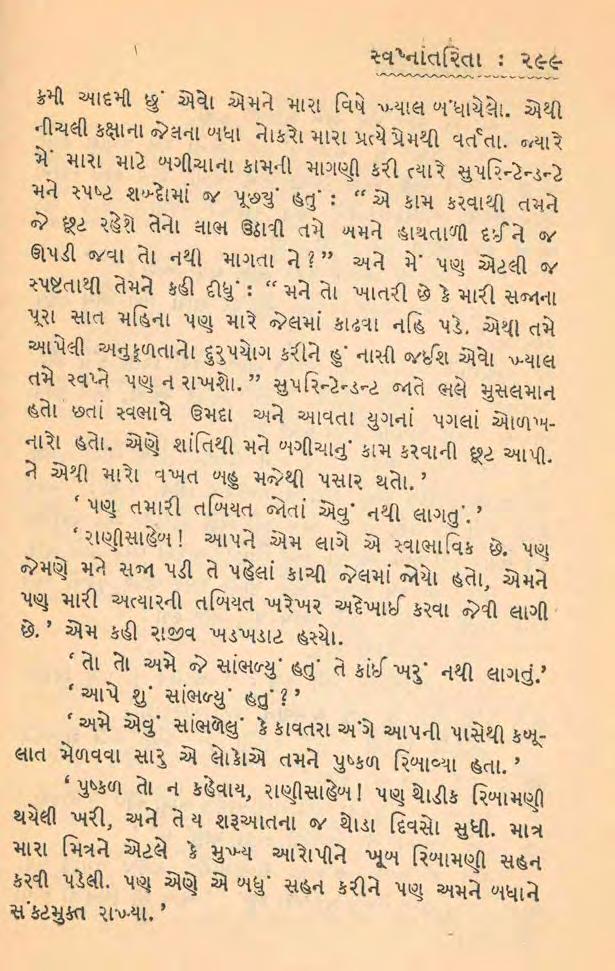 સ્વપ્નાંતરિતા : ૨૯૯
ક્રમી આદમી છું એવો એમને મારા વિષે ખ્યાલ બંધાયેલો. એથી
નીચલી કક્ષાના જેલના બધા નોકરો મારા પ્રત્યે પ્રેમથી વર્તતા. જ્યારે
મેં મારા માટે બગીચાના કામની માગણી કરી ત્યારે સુપરિન્ટેન્ડન્ટે
મને સ્પષ્ટ શબ્દોમાં જ પૂછ્યું હતું : “ એ કામ કરવાથી તમને
જે છૂટ રહેશે તેનો લાભ ઉઠાવી તમે અમને હાથતાળી દઈને જ
ઊપડી જવા તો નથી માગતા ને ? ” અને મેં પણ એટલી જ
સ્પષ્ટતાથી તેમને કહી દીધું : “ મને તો ખાતરી છે કે મારી સજાના
પૂરા સાત મહિના પણ મારે જેલમાં કાઢવા નહિ પડે. એથી તમે
આપેલી અનુકૂળતાનો દુરુપયોગ કરીને હું નાસી જઈશ એવો ખ્યાલ
તમે સ્વપ્ને પણ ન રાખશો. ” સુપરિન્ટેન્ડન્ટ જાતે ભલે મુસલમાન
હતો છતાં સ્વભાવે ઉમદા અને આવતા યુગનાં પગલાં ઓળખ-
નારો હતો. એણે શાંતિથી મને બગીચાનું કામ કરવાની છૂટ આપી.
ને એથી મારો વખત બહુ મજેથી પસાર થતો. ’
‘ પણ તમારી તબિયત જોતાં એવું નથી લાગતું. ’
‘ રાણીસાહેબ ! આપને એમ લાગે એ સ્વાભાવિક છે. પણ
જેમણે મને સજા પડી તે પહેલાં કાચી જેલમાં જોયો હતો, એમને
પણ મારી અત્યારની તબિયત ખરેખર અદેખાઈ કરવા જેવી લાગી
છે. ’ એમ કહી રાજીવ ખડખડાટ હસ્યો.
‘ તો તો અમે જે સાંભળ્યું હતું તે કાંઈ ખરું નથી લાગતું. ’
‘ આપે શું સાંભળ્યું હતું ? ’
‘ અમે એવું સાંભળેલું કે કાવતરા અંગે આપની પાસેથી કબૂ-
લાત મેળવવા સારુ એ લોકોએ તમને પુષ્કળ રિબાવ્યા હતા. ’
‘ પુષ્કળ તો ન કહેવાય, રાણીસાહેબ ! પણ થોડીક રિબામણી
થયેલી ખરી, અને તે ય શરૂઆતના જ થોડા દિવસો સુધી. માત્ર
મારા મિત્રને એટલે કે મુખ્ય આરોપીને ખૂબ રિબામણી સહન
કરવી પડેલી. પણ એણે એ બધું સહન કરીને પણ અમને બધાને
સંકટમુક્ત રાખ્યા. ’